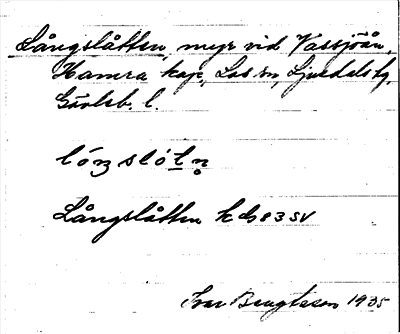 Långslåtten, myr vid Vassjöån,
Hamra kap., Los sn, Ljusdals tg,
Gävleb. l.
lóŋslótn̥
Långslåtten k bl 83 SV
Ivar Bengtsson 1935